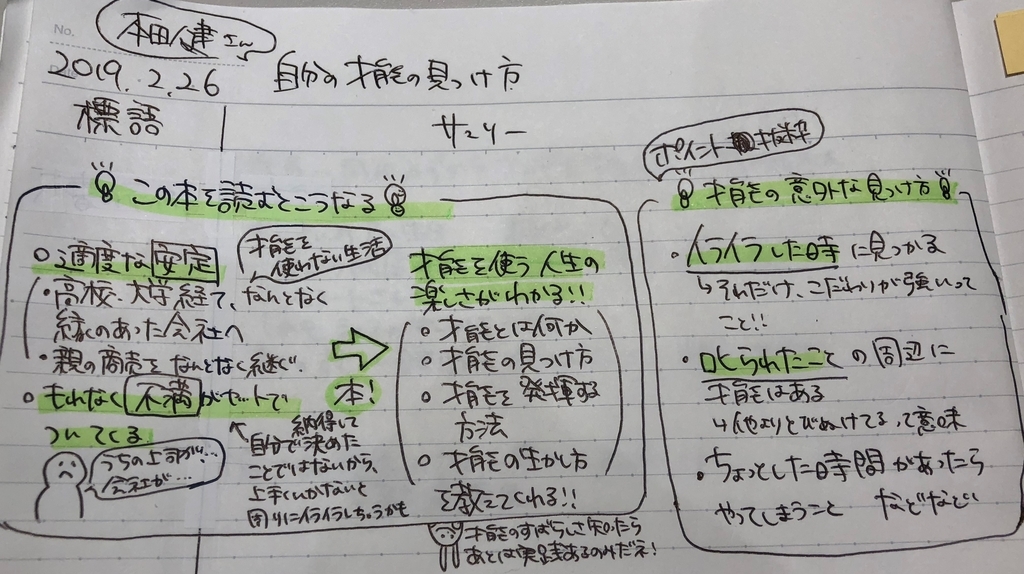 No.
本田健さん
2019.2.26 自分の才能の見つけ方
標語 サマリー
ポイント抜粋
この本を読むとこうなる
適度な安定
才能を
使わない生活
・高校、大学経て、なんとなく
縁のあった会社へ
・親の商売をなんとなく継ぐ
もれなく不満がセットで
ついてくる
うちの上司が…
会社が…
納得して
自分で決めた
ことではないから、
上手くいかないと
周りにイライラしちゃうかも
本!
才能を使う人生の
楽しさがわかる!!
○才能とは何か
○才能の見つけ方
○才能を発揮する
方法
○才能の生かし方
を教えてくれる!!
才能のすばらしさ知ったら
あとは実践あるのみだネ!
才能の意外な見つけ方
・イライラした時に見つかる
↳それだけ、こだわりが強いって
こと!!
・叱られたことの周辺に
才能はある
↳他よりとびぬけてるって意味
・ちょっとした時間があったら
やってしまうこと などなど